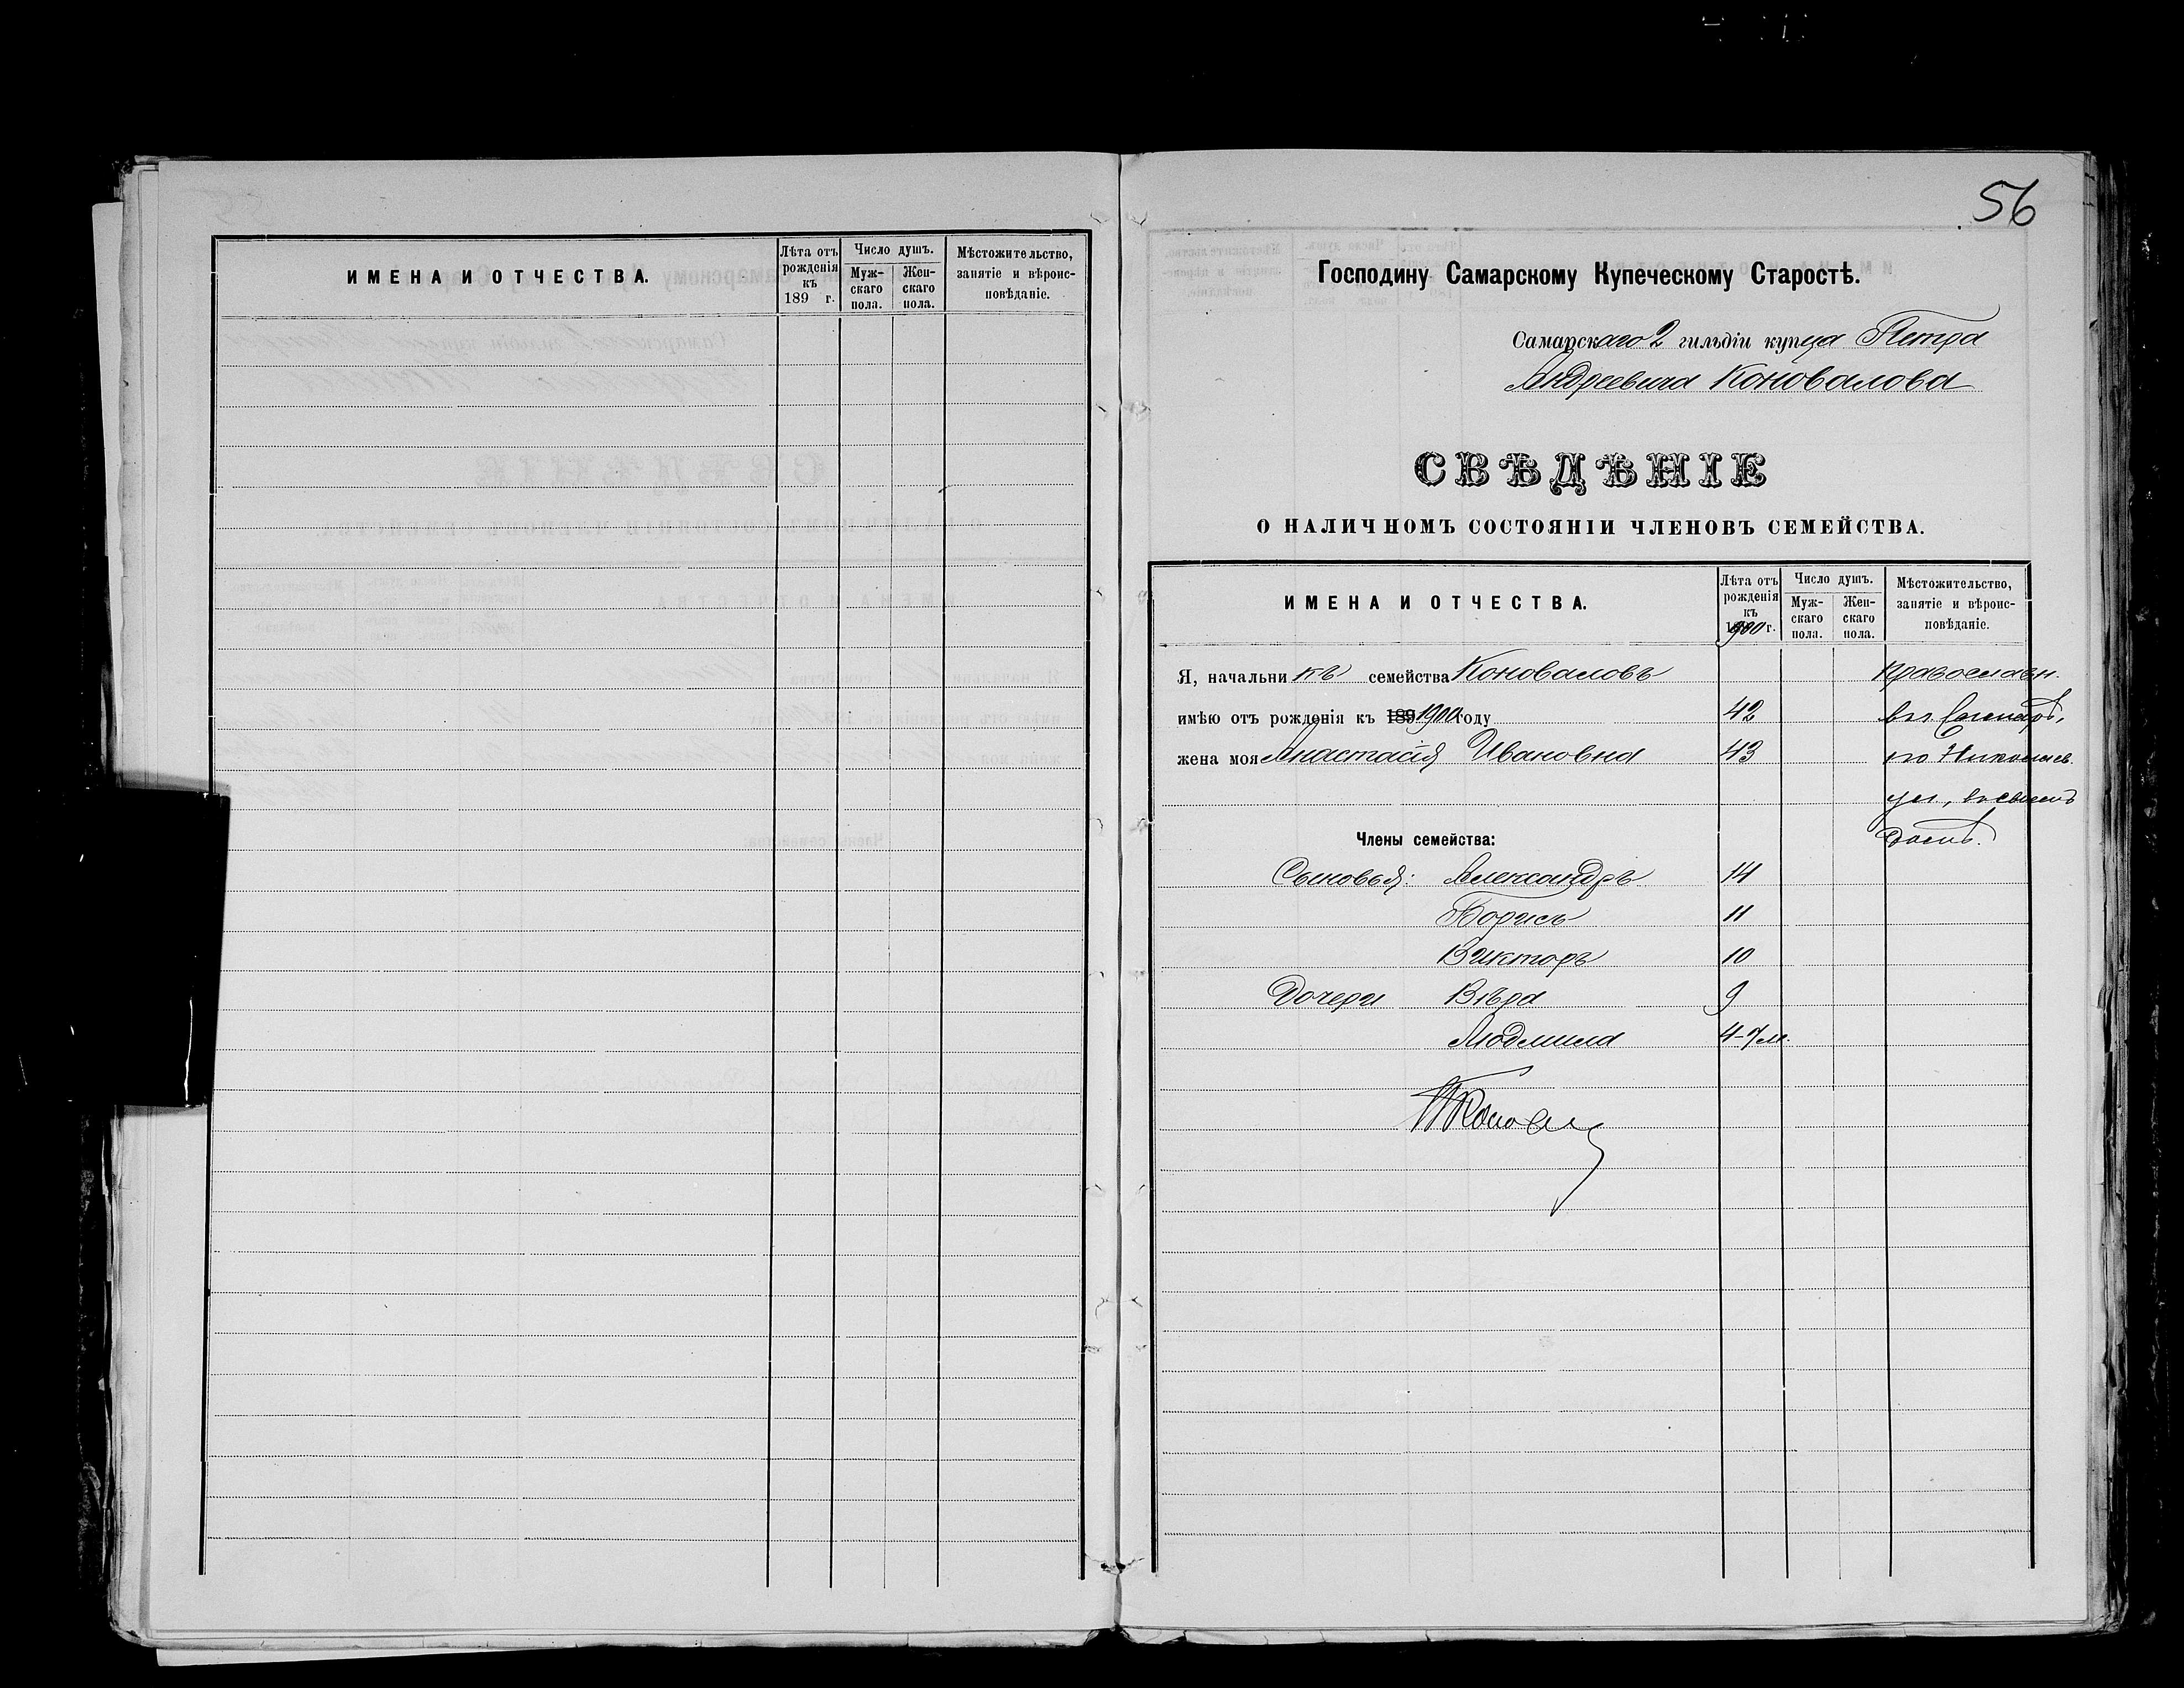 ИМЕНА И ОТЧЕСТВА.
Лѣта отъ рожденія къ 189 г.
Число душъ.
Мужскаго пола.
Женскаго пола.
Мѣстожительство, занятіе и вѣроисповѣданіе.
56
Господину Самарскому Купеческому Старостѣ.
Самарскаго 2 гильдіи купца Петра
Андреевича Коновалова
СВѢДѢНІЕ
О НАЛИЧНОМЪ СОСТОЯНІИ ЧЛЕНОВЪ СЕМЕЙСТВА.
ИМЕНА И ОТЧЕСТВА.
Лѣта отъ
рожденія
къ
1900 г.
Число душъ.
Муж-
скаго
пола.
Жен-
скаго
пола.
Мѣстожительство,
занятіе и вѣроис-
повѣданіе.
Я, начальникъ семейства Коноваловъ православн.
имѣю отъ рожденія къ 189 1900 году 42 въ Самарѣ,
жена моя Анастасія Ивановна 43 по Николаев.
ул., въ своемъ
Члены семейства: домѣ.
Сыновья: Александръ 14
Борисъ 11
Викторъ 10
Дочери Вѣра 9
Людмила 4